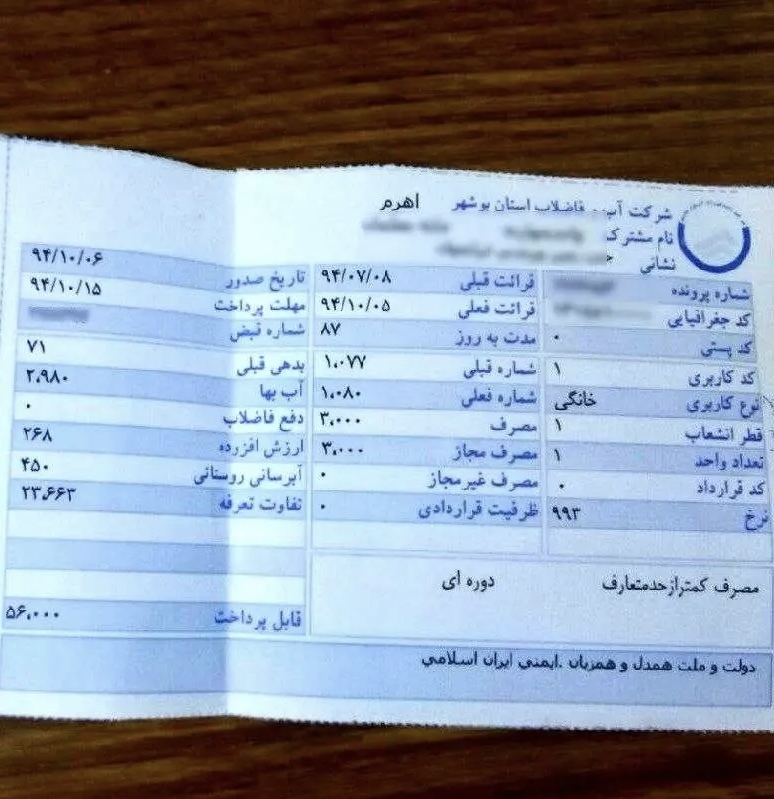 شرکت آب و فاضلاب استان بوشهر اهرم
نام مشترک
نشانی
شماره پرونده
کد جغرافیایی
کد پستی ۰
کد کاربری ۱
نوع کاربری خانگی
قطر انشعاب ۱
تعداد واحد ۱
کد قرارداد ۰
نرخ ۹۹۳
قرائت قبلی ۹۴/۰۷/۰۸
قرائت فعلی ۹۴/۱۰/۰۵
مدت به روز ۸۷
شماره قبلی ۱،۰۷۷
شماره فعلی ۱،۰۸۰
مصرف ۳،۰۰۰
مصرف مجاز ۳،۰۰۰
مصرف غیرمجاز ۰
ظرفیت قراردادی ۰
تاریخ صدور ۹۴/۱۰/۰۶
مهلت پرداخت ۹۴/۱۰/۱۵
شماره قبض
بدهی قبلی ۷۱
آب بها ۲،۹۸۰
دفع فاضلاب ۰
ارزش افزرده ۲۶۸
آبرسانی روستائی ۴۵۰
تفاوت تعرفه ۲۳،۶۶۳
قابل پرداخت ۵۶،۰۰۰
مصرف کمترازحدمتعارف دوره ای
دولت و ملت همدل و همزبان .ایمنی ایران اسلامی